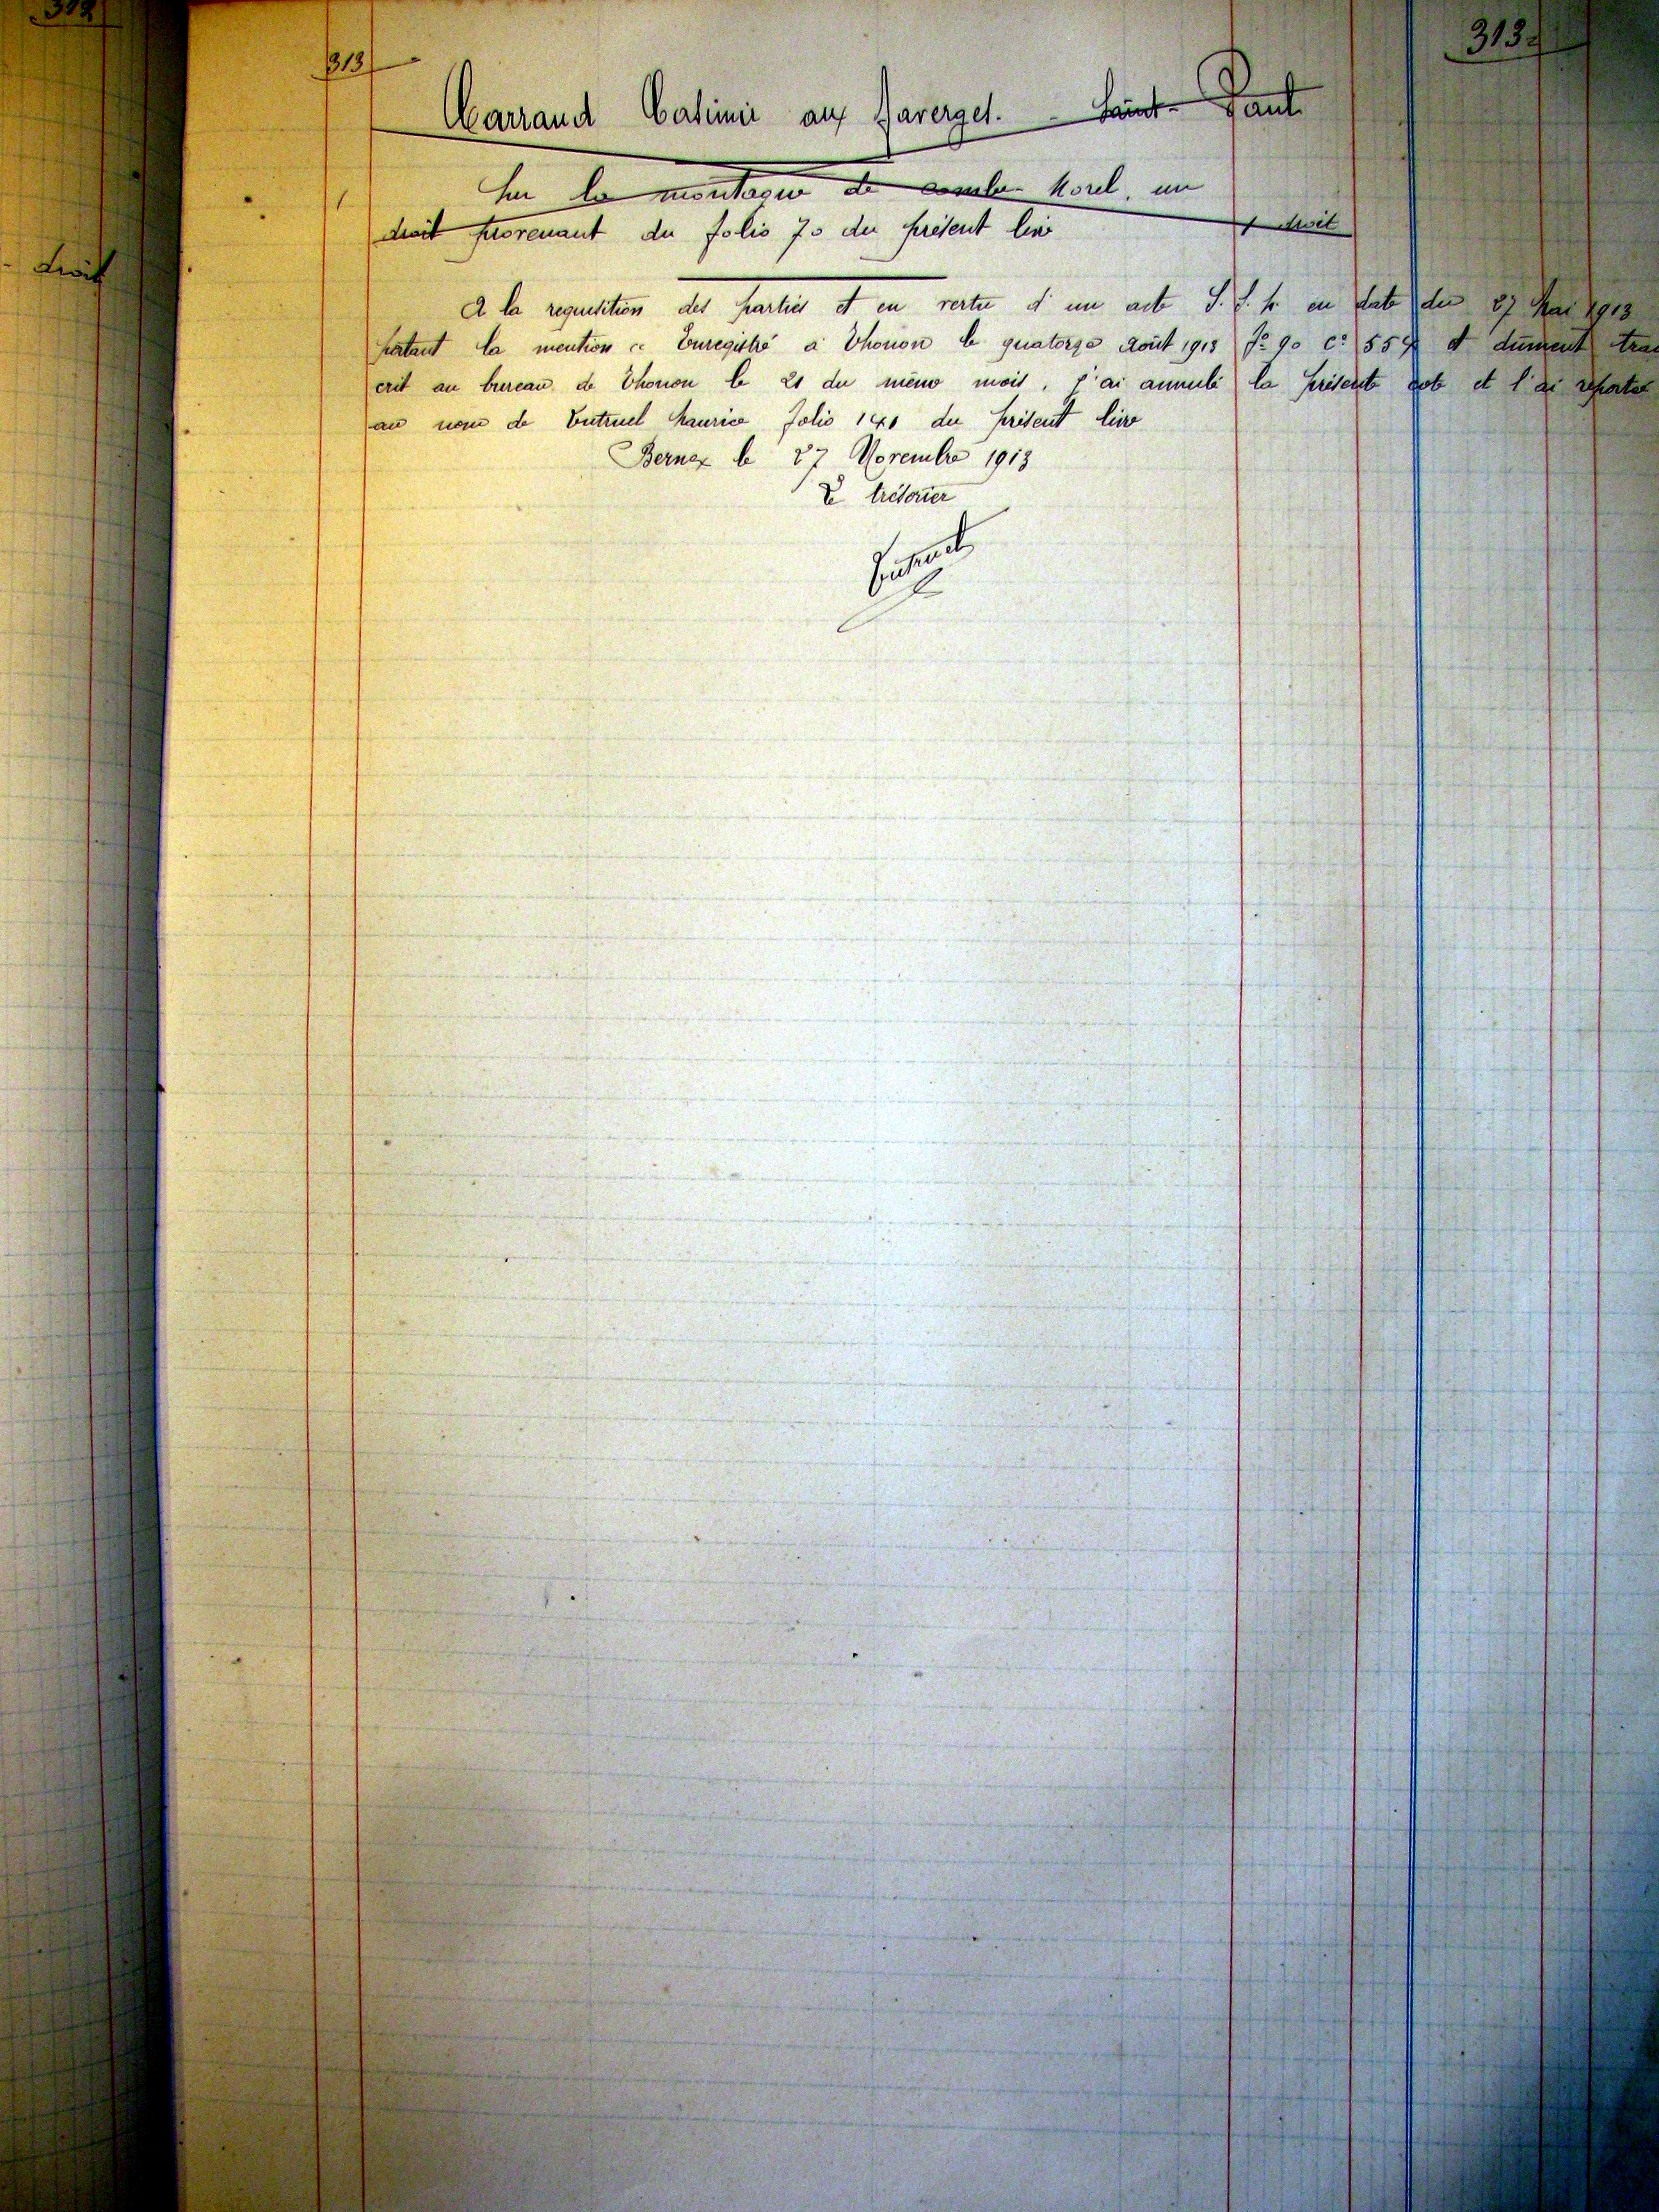 312
droit
313
313
Carraud Casimir aux Faverges. - Saint-Paul
1 Sur la montagne de combe Morel, un
droit provenant du folio 70 du présent livre 1 droit
A la requisition des parties et en vertu d'un acte S. S. P. en date du 27 Mai 1913
portant la mention « Enregistré à Thonon le quatorze Août 1913 f° 90 c° 557 et dument trans
crit au bureau de Thonon le 21 du même mois, j'ai annulé la présente cote et l'ai reportée
au nom de Dutruel Maurice folio 141 du présent livre
Bernex le 27 Novembre 1913
Le trésorier